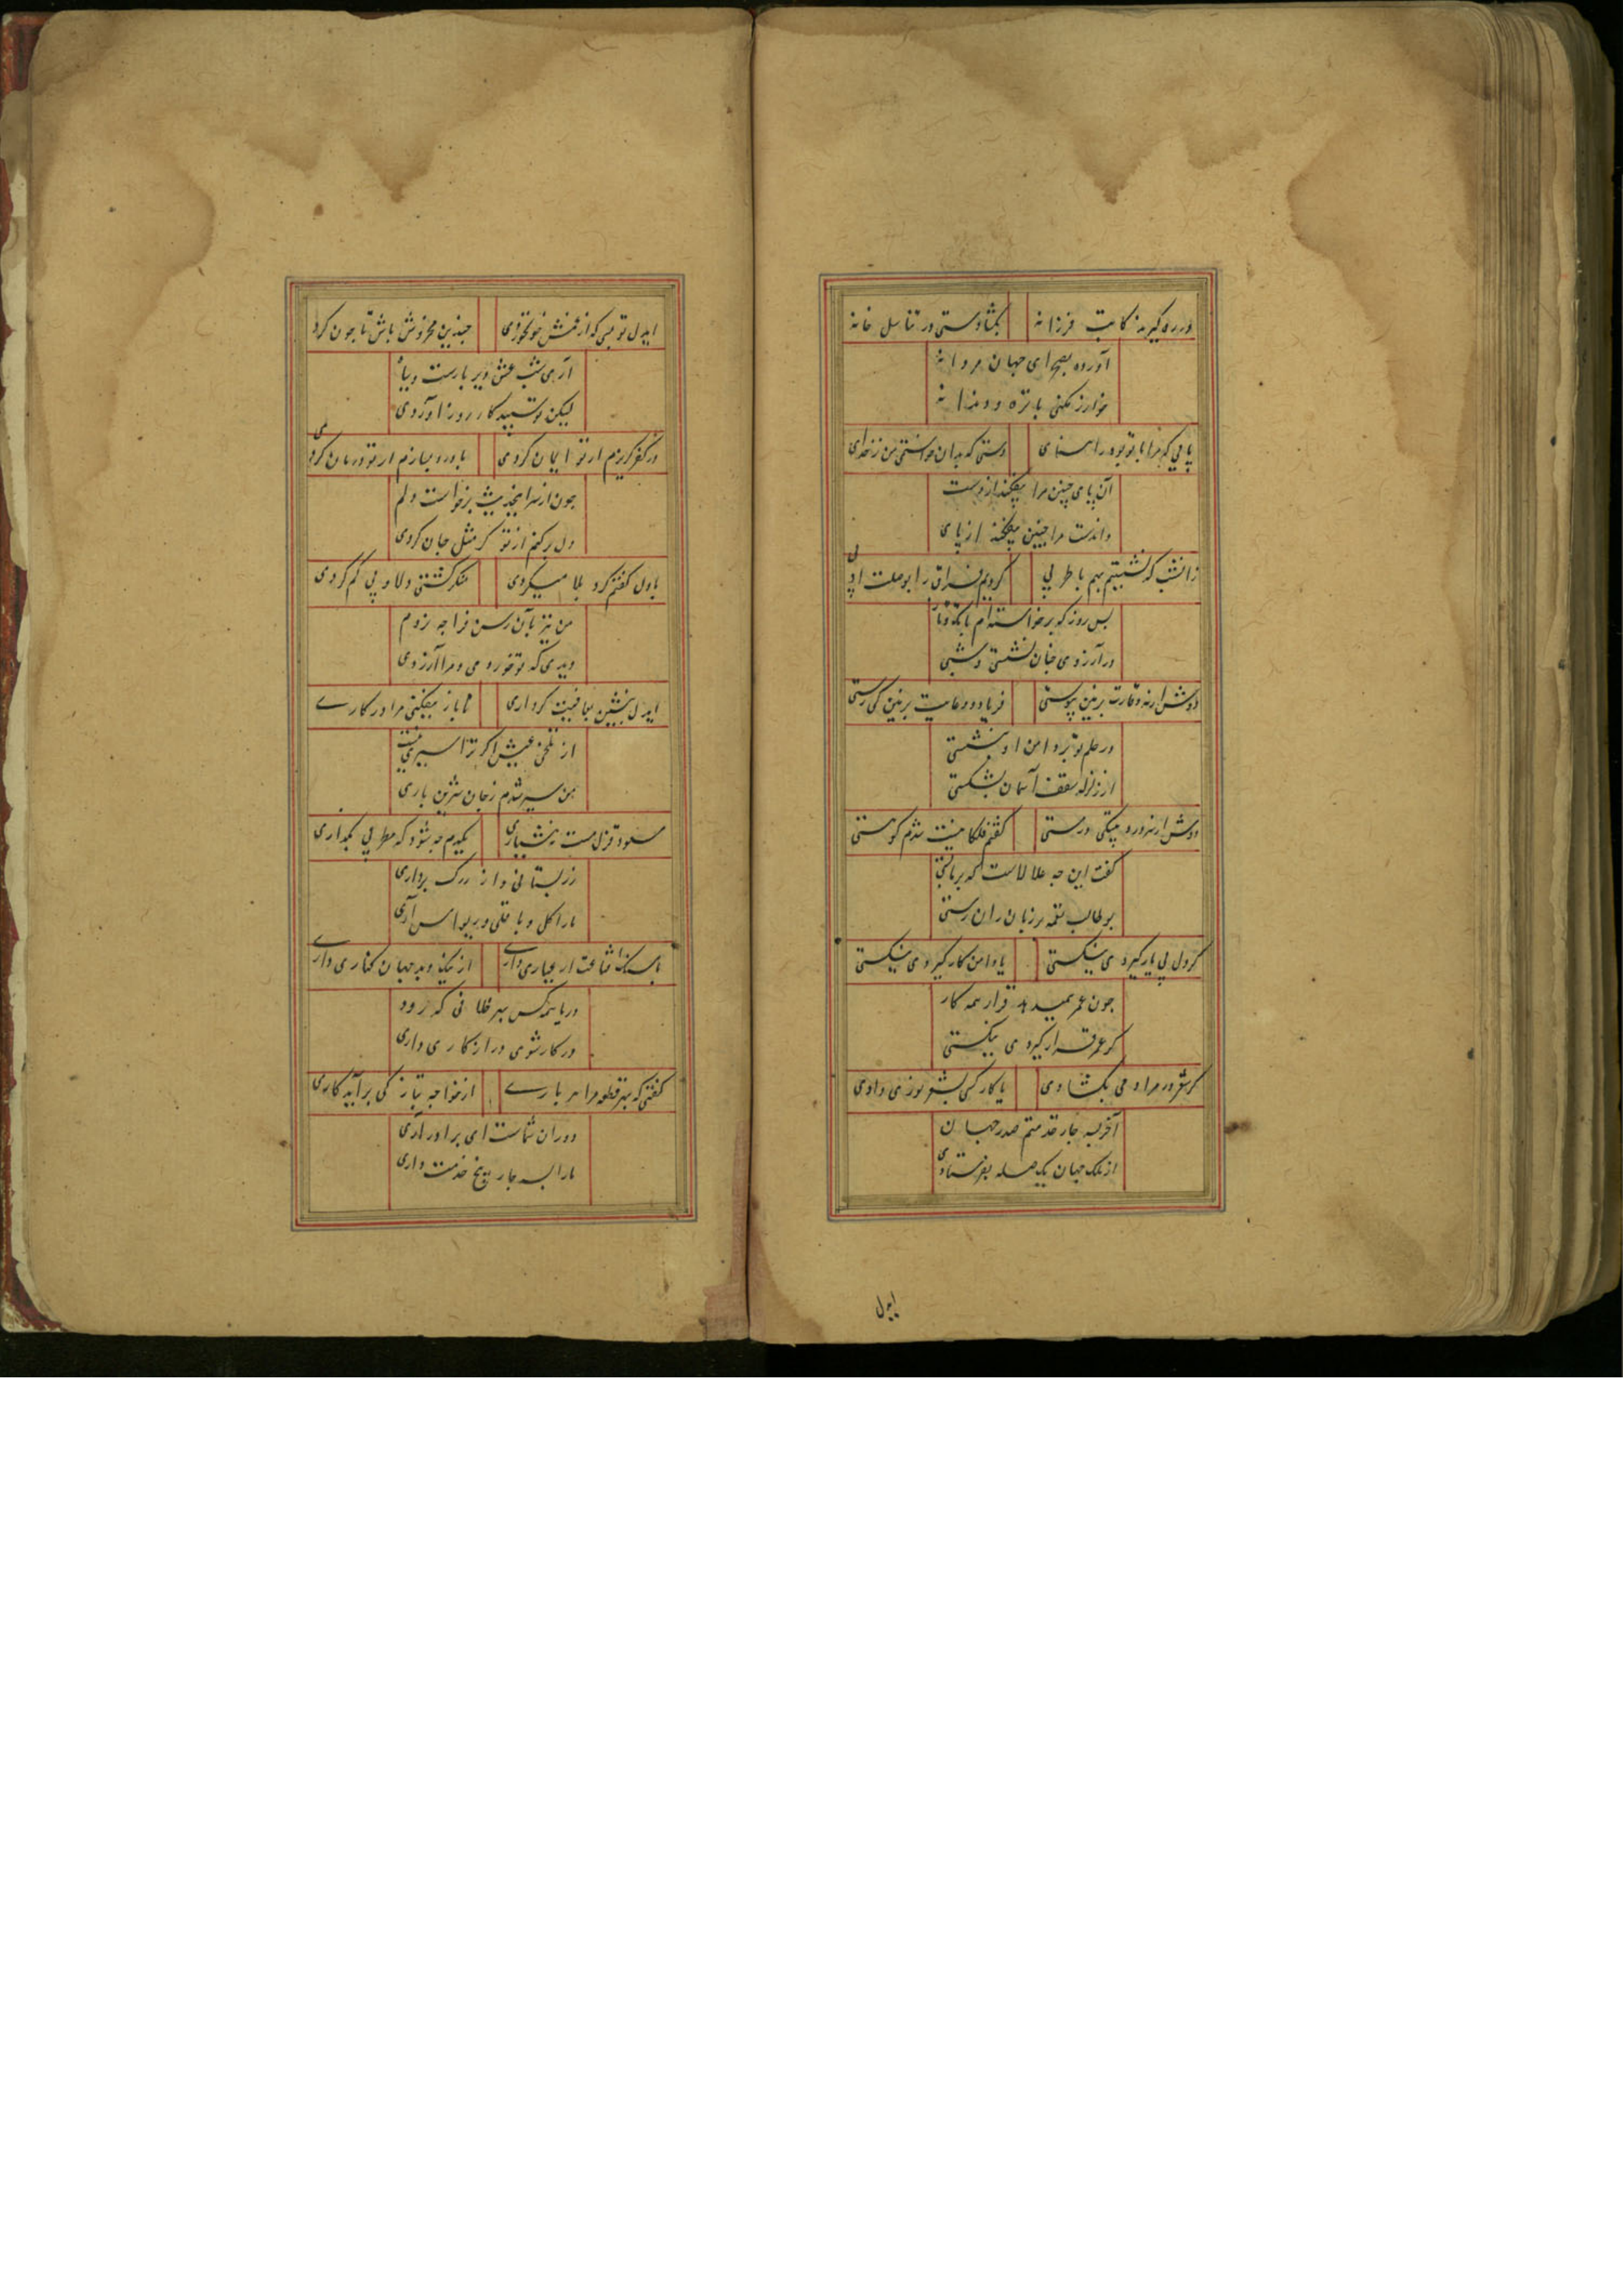 در ره گیرید کاتب فرزانه بگشاد دستی در تناسل خانه
آورده بصحرای جهان مردانه
خوارزمکنی با تره و دندانه
پایی که مرا با تو بود راهنمای دستی که بدان خواستمی من ز خدای
آن پای چنین مرا بیفکند از دست
وان دست مرا چنین بیفکند از پای
زانشب که نشستیم بهم با طربی کردیم فراق را بوصلت ادبی
بس روز که برخاسته‌ام با تک و تا
در آرزوی چنان نشستی و شبی
دوش از تو غارت برنین پیوستی فریاد و دعا برنین کی رستی
در حلم تو بر دامن او ننشستی
از زلزله سقف آسمان بشکستی
دوش از سر درد و پیکی در ستی گفتم فلکا نیست شدم گو هستی
گفت این چه علالاست که بر ما بستی
بوطالب نعمه بر زبان ران رستی
گر دل پی یار گیردی نیکستی یا دامن کار گیردی نیکستی
چون عمر همیدهد قرار همه کار
گر عمر قرار گیردی نیکستی
گر شعر در مراد می بگشادی یا کار کسی بشعر نوری دادی
آخر بسه چار خدمتم صدر جهان
از ملک جهان یک صله بفرستادی
ایدل
ایدل تو بسی که از غمش خون خوردی چندین مخروش باش تا چون گردی
آری شب عشق دیر بازست و سیاه
لیکن تو سپید کار روز آوردی
در کفر گریزم ار تو ایمان گردی با درد بسازم ار تو درمان گردی
چون از سر این حدیث برخاست دلم
دل برکنم از تو گر مثل جان گردی
با دل گفتم گرد بلا میگردی منکر گشتی دلا و پی گم کردی
من نیز بآن رسن فرا چه زدم
دیدی که تو خوردی و مرا آزردی
ایدل بنشین بعافیت گرداری تا باز نیفکنی مرا در کاری
از تلخی عیش اگر ترا سیری نیست
من سیر شدم ز جان شیرین باری
مسعود قزل مست نه هشیاری یکدم چه شود که مطربی بگذاری
زر بستانی و از رگ برداری
ما را گلی و باقلی و ریواس آری
با سنگ قناعت ار عیاری داری از نیک و بد جهان کناری داری
در باهمه کس بهر خلافی که رود
در کار شوی دراز کاری داری
گفتی که بهر قطعه مرا هر باری از خواجه بتازگی برآید کاری
دوران شماست ای برادر آری
ما را بسه چار پنج خدمت داری